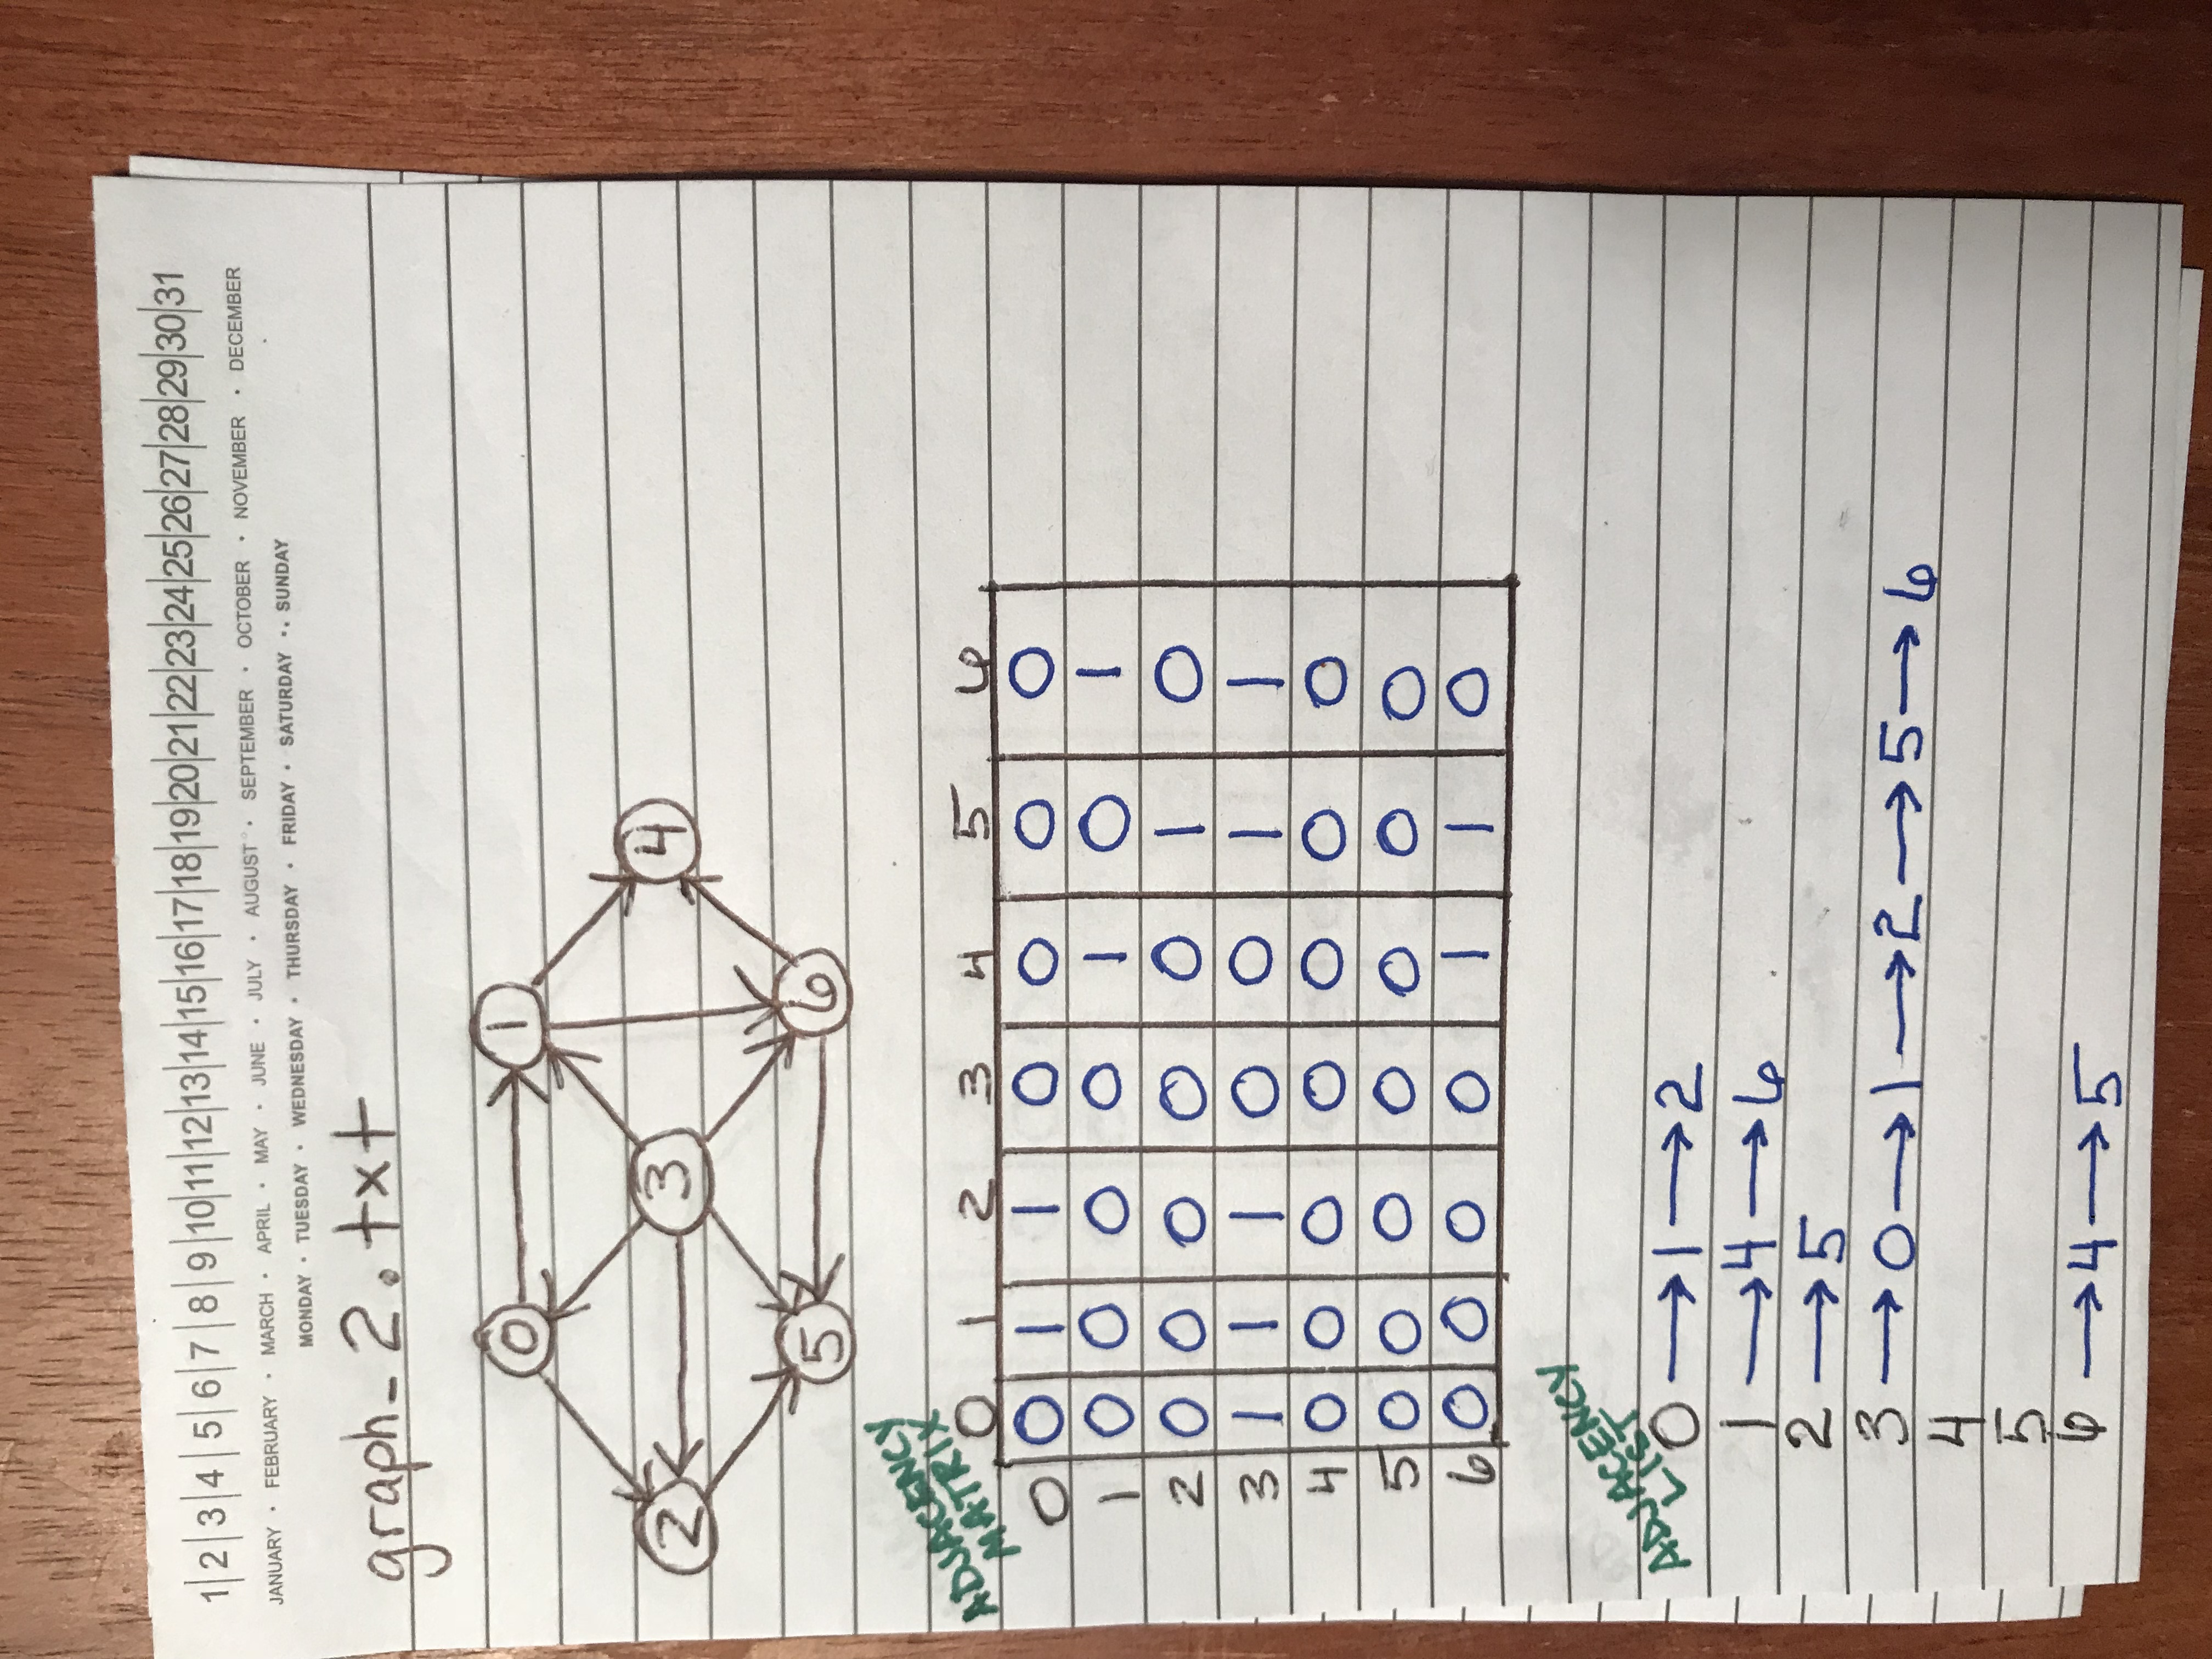 1 2 3 4 5 6 7 8 9 10 11 12 13 14 15 16 17 18 19 20 21 22 23 24 25 26 27 28 29 30 31
JANUARY • FEBRUARY • MARCH • APRIL • MAY • JUNE • JULY • AUGUST • SEPTEMBER • OCTOBER • NOVEMBER • DECEMBER
MONDAY • TUESDAY • WEDNESDAY • THURSDAY • FRIDAY • SATURDAY • SUNDAY
graph_2.txt
0 1
2 3 4
5 6
ADJACENCY
MATRIX
0 1 2 3 4 5 6
0 0 1 1 0 0 0 0
1 0 0 0 0 1 0 1
2 0 0 0 0 0 1 0
3 1 1 1 0 0 1 1
4 0 0 0 0 0 0 0
5 0 0 0 0 0 0 0
6 0 0 0 0 1 1 0
ADJACENCY
LIST
0 → 1 → 2
1 → 4 → 6
2 → 5
3 → 0 → 1 → 2 → 5 → 6
4
5
6 → 4 → 5